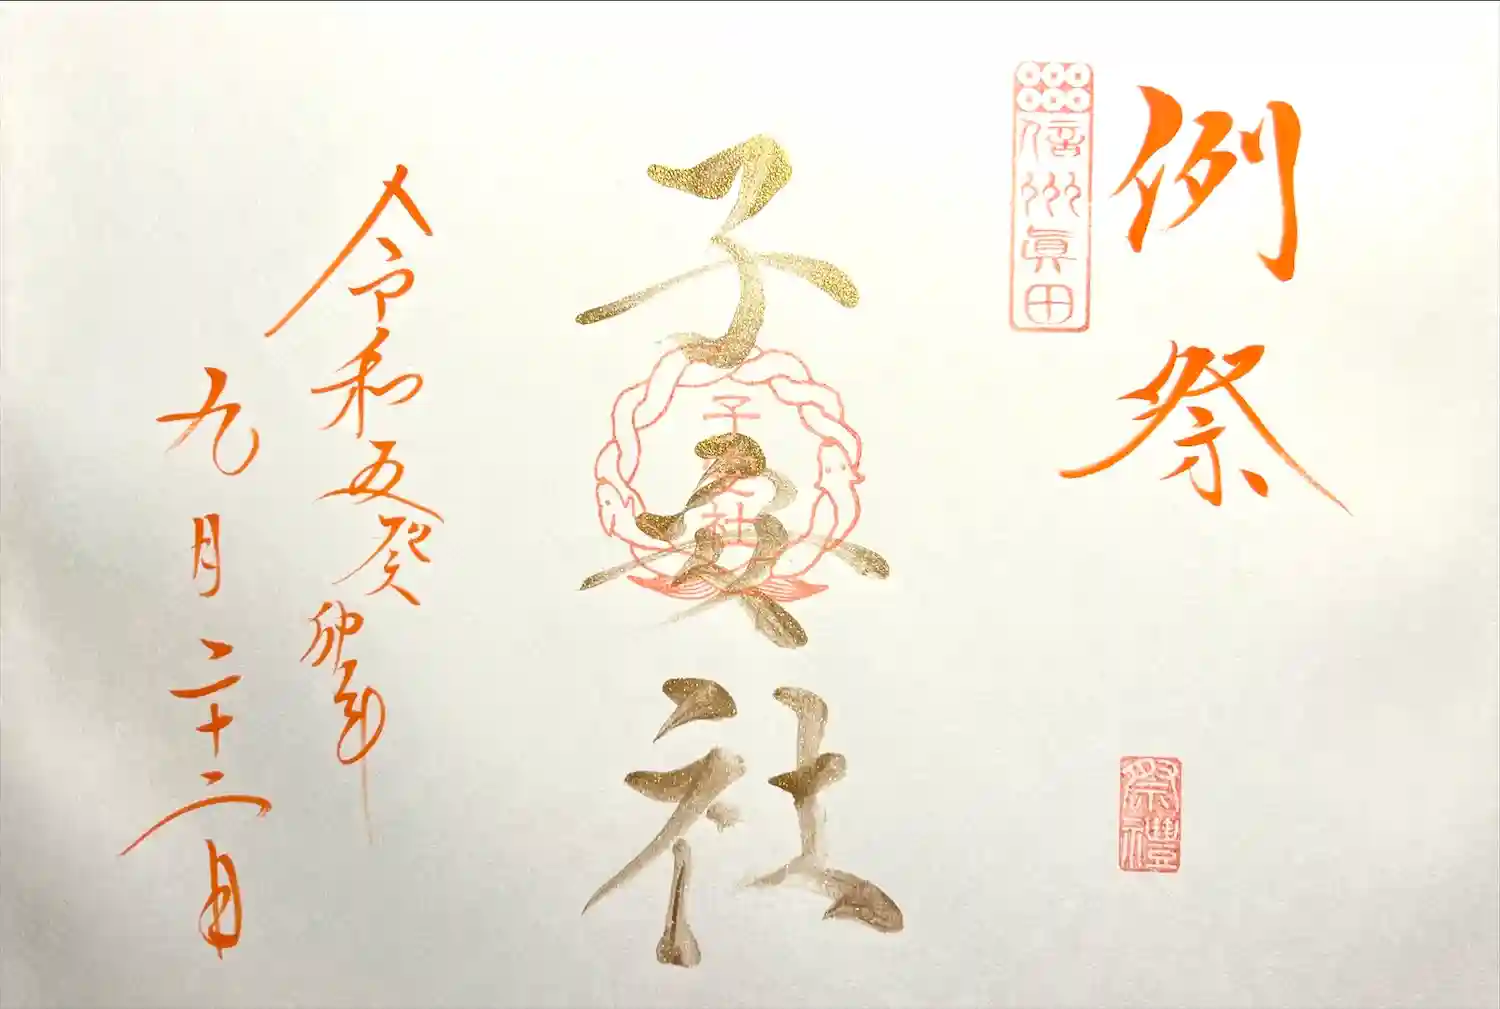 例祭
信州眞田
祭禮
子安社
子安社
令和五癸卯年
九月二十二日